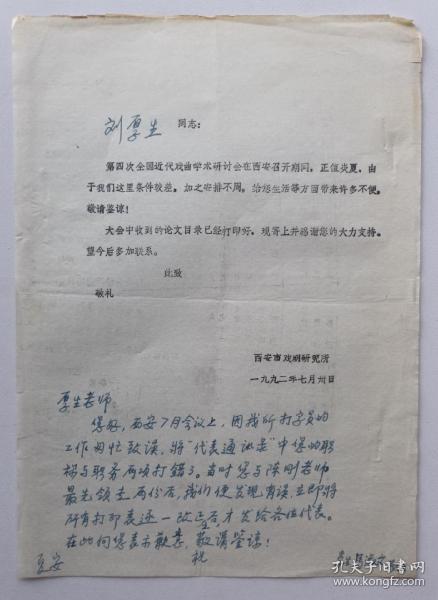 刘厚生 同志：
第四次全国近代戏曲学术研讨会在西安召开期间，正值炎夏，由
于我们这里条件较差，加之安排不周，给您生活等方面带来许多不便，
敬请鉴谅！
大会中收到的论文目录已经打印好，现寄上并感谢您的大力支持。
望今后多加联系。
此致
敬礼
西安市戏剧研究所
一九九二年七月卅日
厚生老师
您好，西安7月会议上，因我所打字员的
工作匆忙致误，将“代表通讯录”中您的职
称与职务两项打错了。当时您与陈刚老师
最先领走两份后，我们便发现有误，立即将
所有打印表逐一改正后，才发给各位代表。
在此向您表示歉意，敬请鉴谅！
祝
夏安
孔夫子旧书网